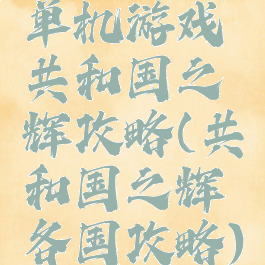 单机游戏
共和国之
辉攻略(共
和国之辉
各国攻略)